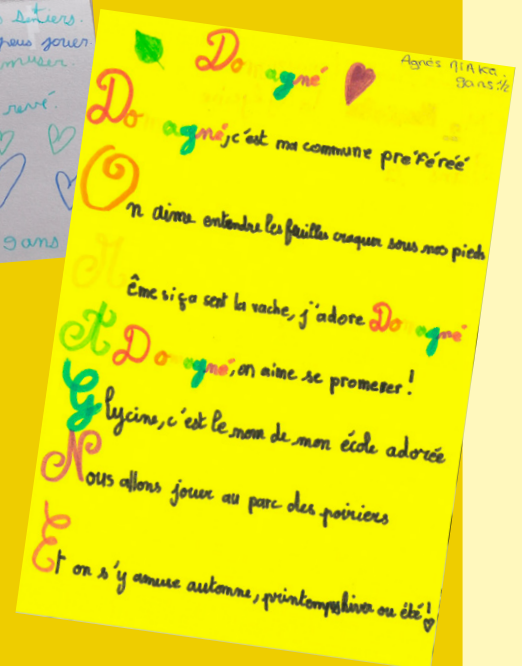 s sentiers.
jouer
muser.
revé.
9 ans
Agnès
9ans 1/2
Domagné
Domagné, c'est ma commune préféréé
On aime entendre les feuilles craquer sous nos pieds
Même si ça sent la vache, j'adore Domagné
A Domagné, on aime se promener!
Glycine, c'est le nom de mon école adorée
Nous allons jouer au parc des poiriers
Et on s'y amuse automne, printemps, hiver ou été!